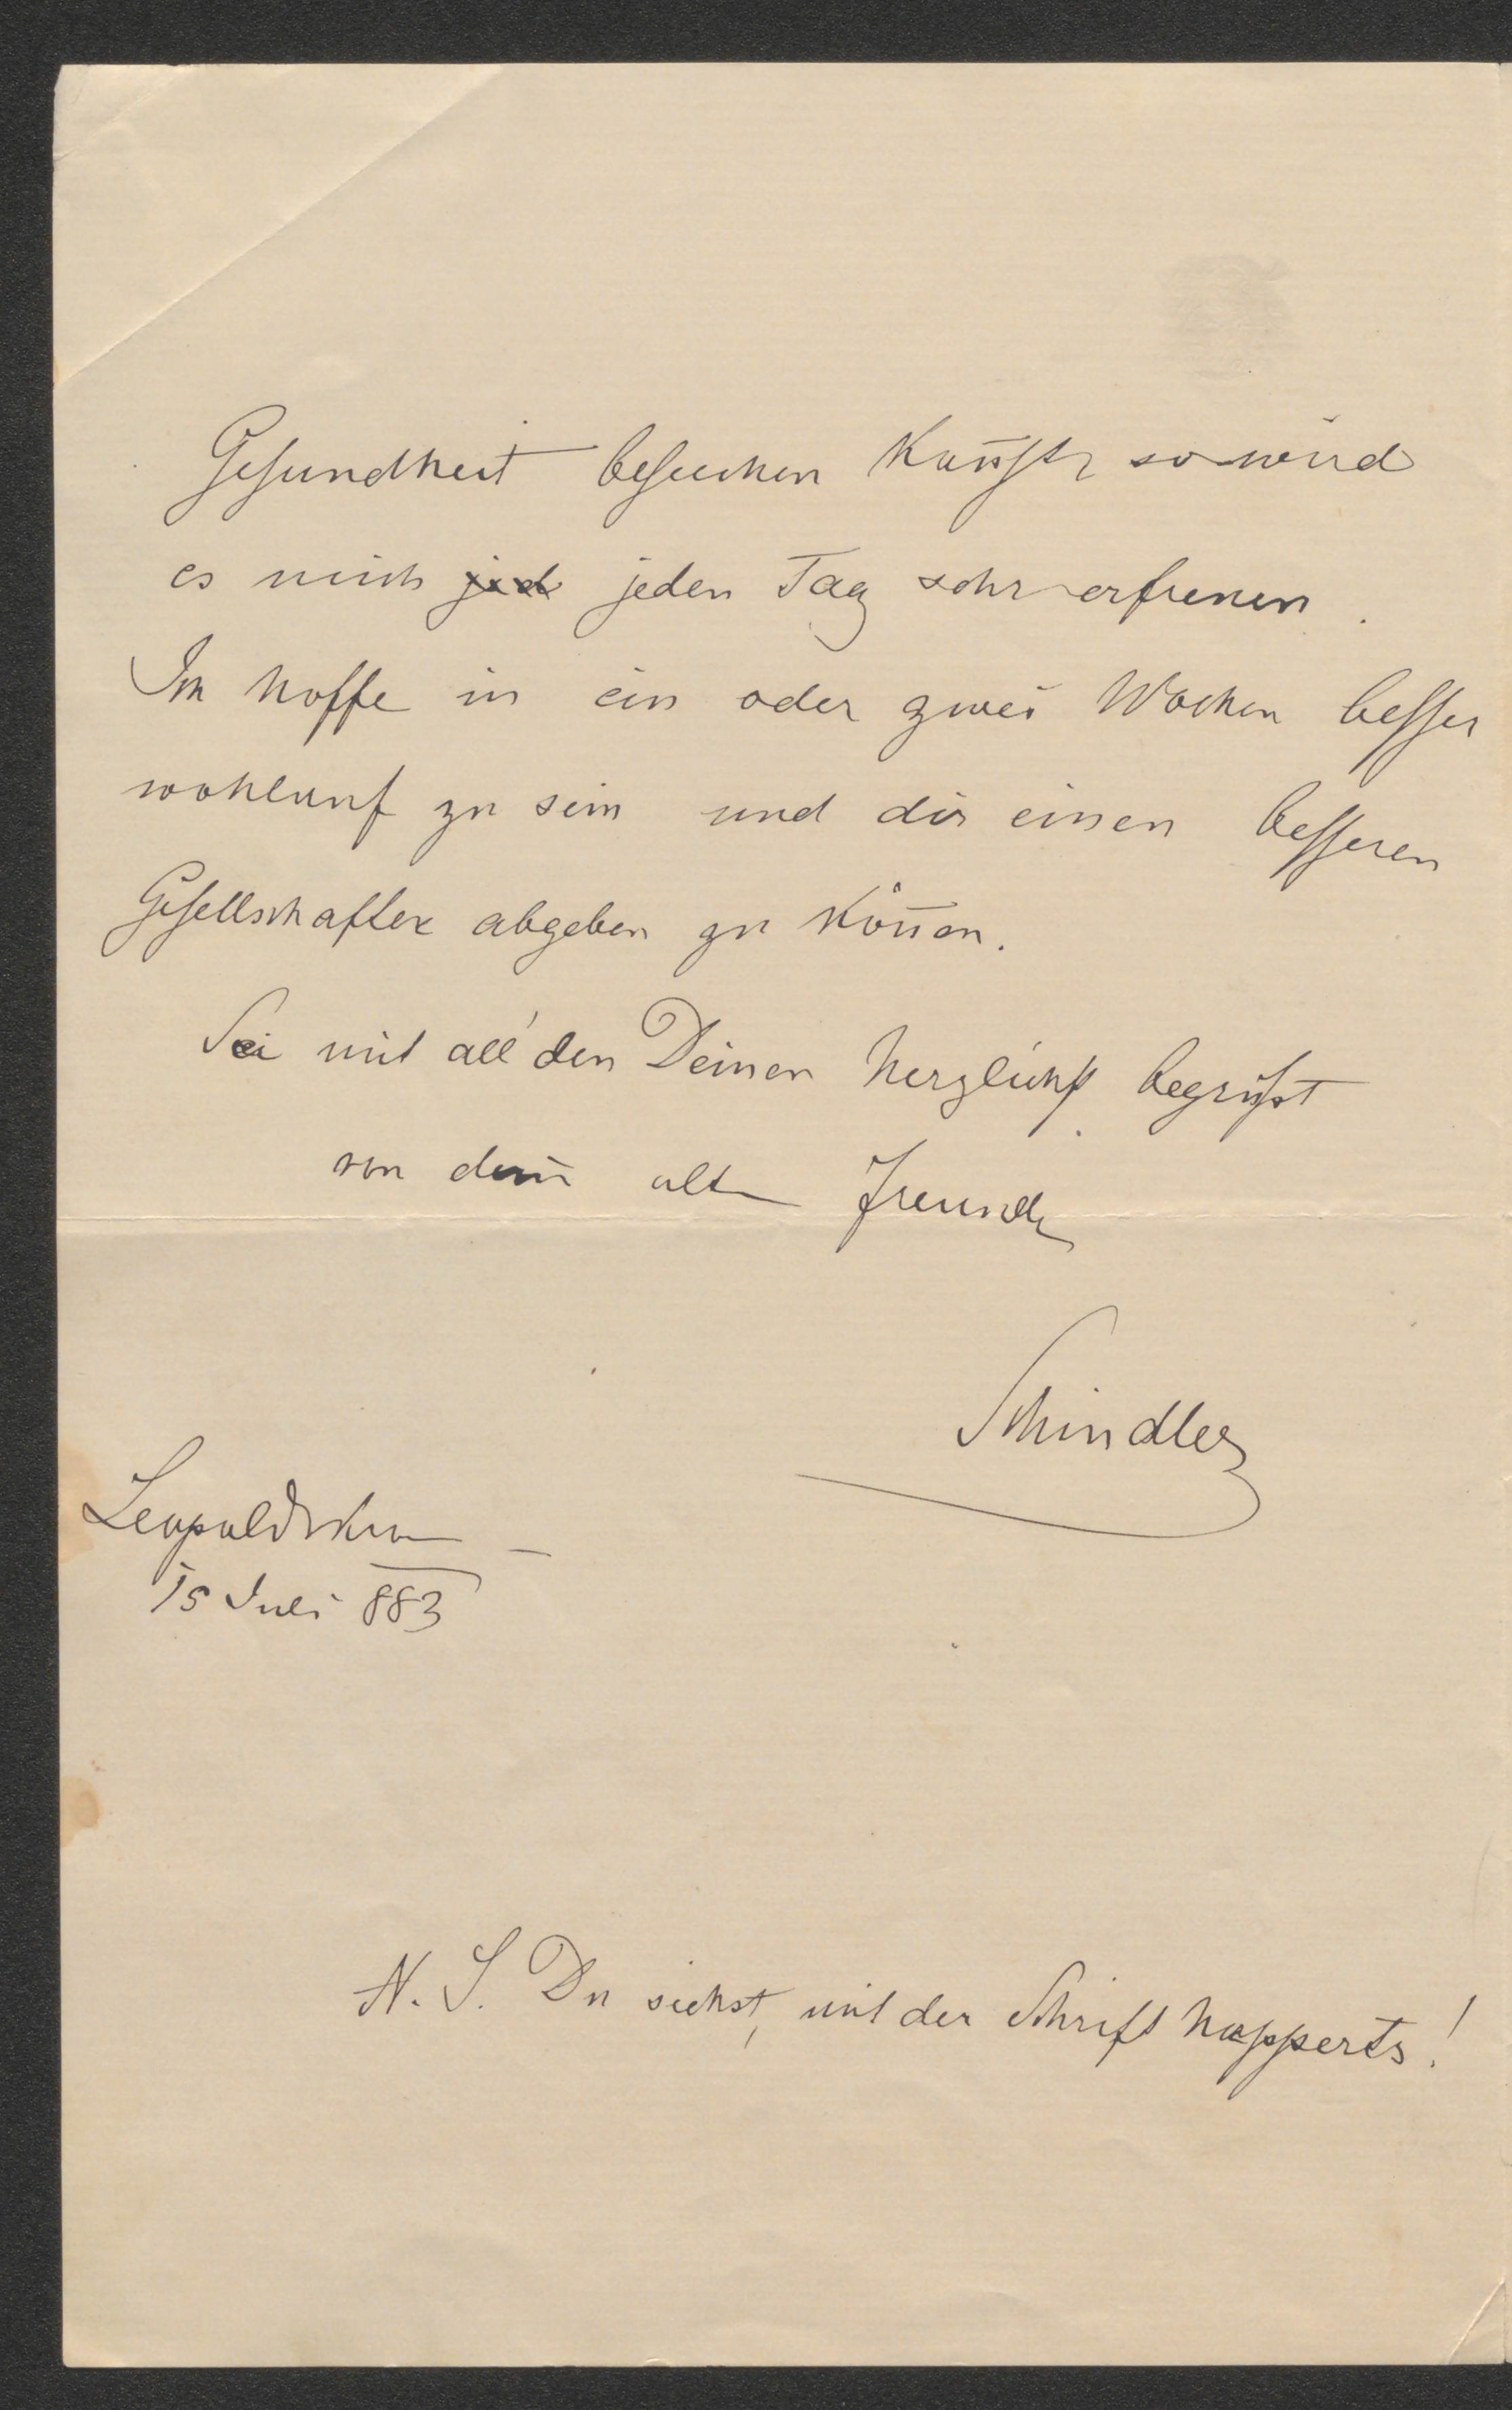 Gesundheit besuchen kan̄st so wird
es mich jed jeden Tag sehr erfreuen.
Ich hoffe in ein oder zwei Wochen besser
wohlauf zu sein und dir einen besseren
Gesellschafter abgeben zu kön̄en.
Sei mit all' den Deinen herzlichst begrüßt
von dein alten Freunde
Schindler
Leopoldskron
15 Juli 883
N. S. Du siehst, mit der Schrift happerts!